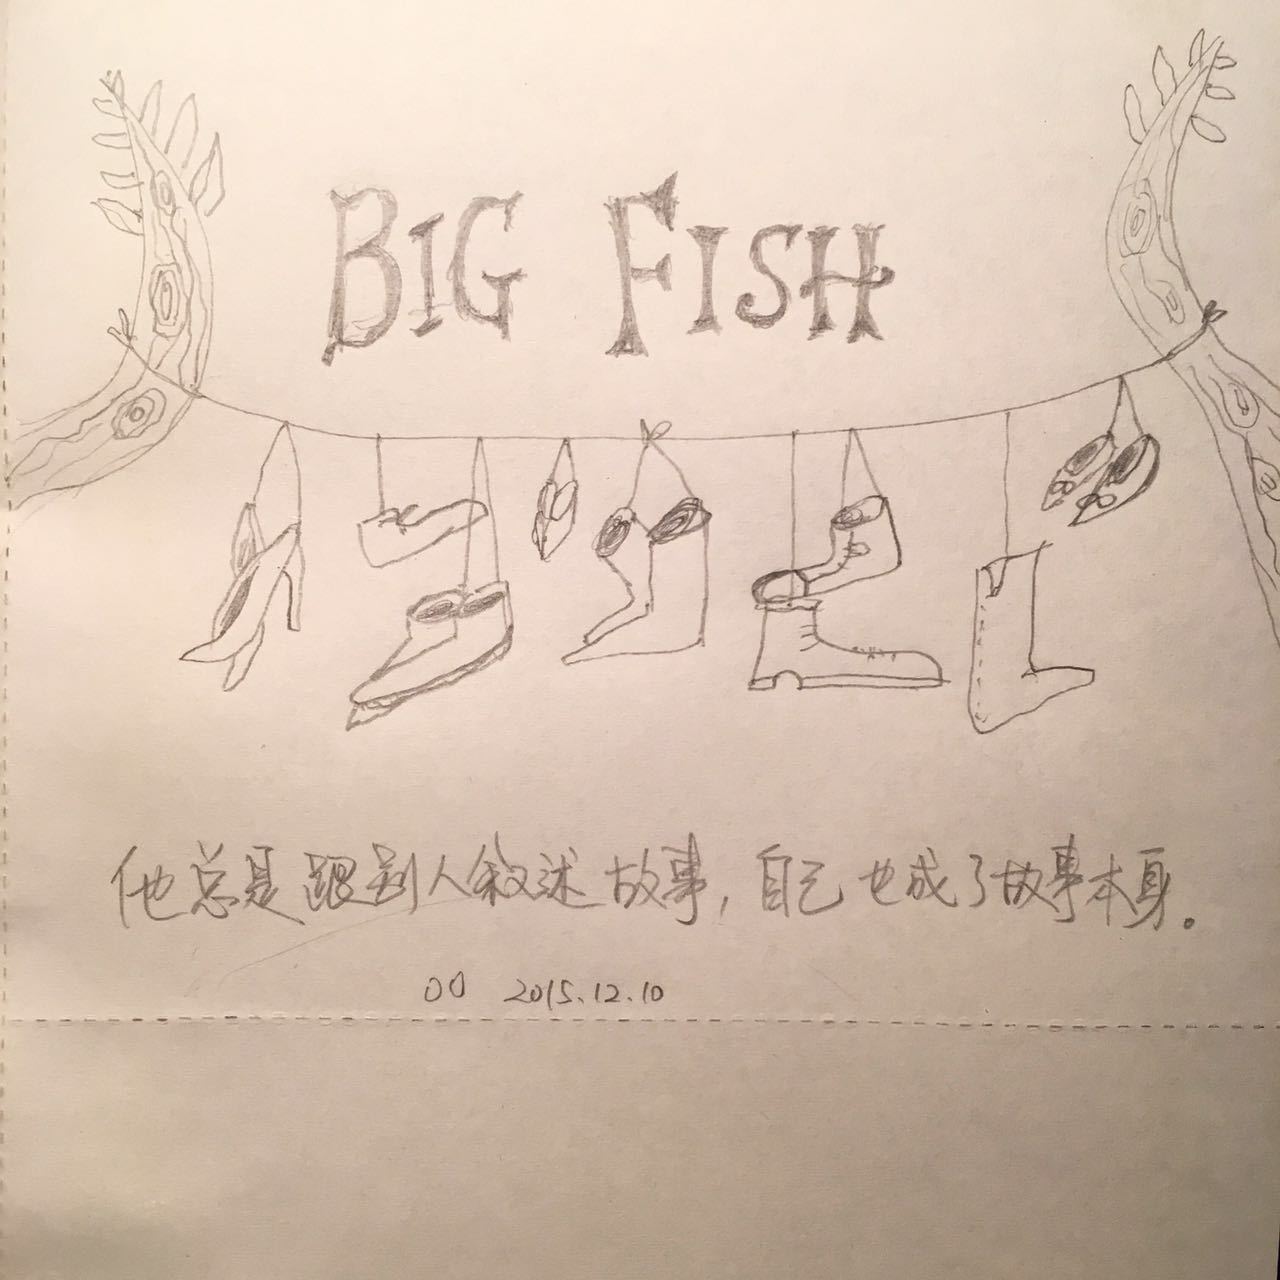 BIG FISH
他总是跟别人叙述故事,自己也成了故事本身。
00 2015.12.10